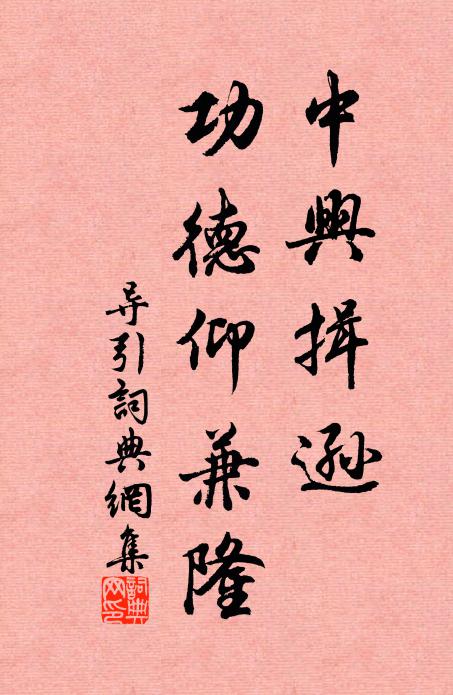 中興揖遜
功德仰兼隆
导引詞典網集
詞典
网印